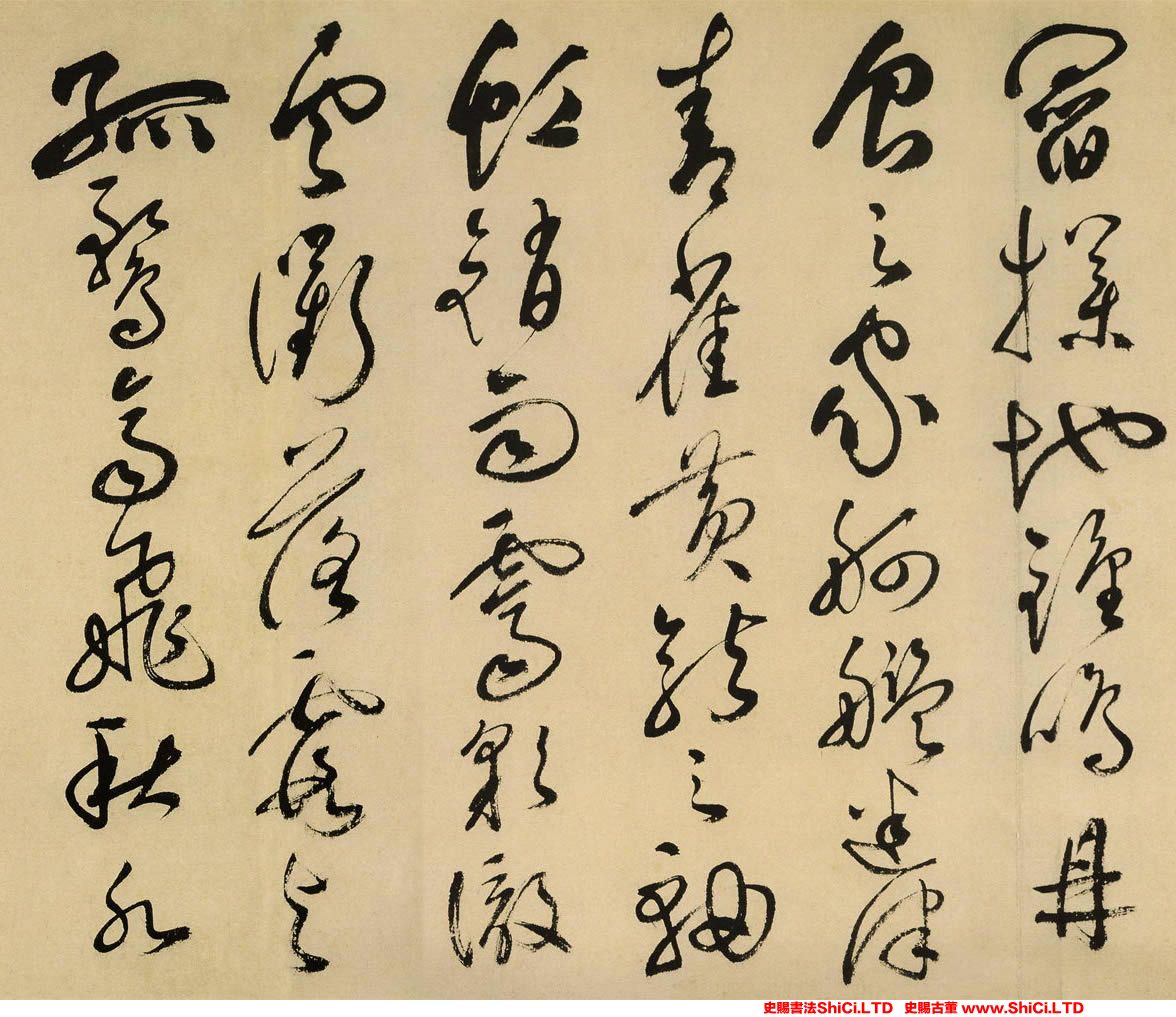 閻撲地鐘鳴鼎
食之家舸艦迷津
青雀黃龍之軸
虹銷雨霽彩徹
雲衢落霞與
孤鶩齊飛秋水
史賜書法ShiCi.LTD 史賜古董 www.ShiCi.LTD